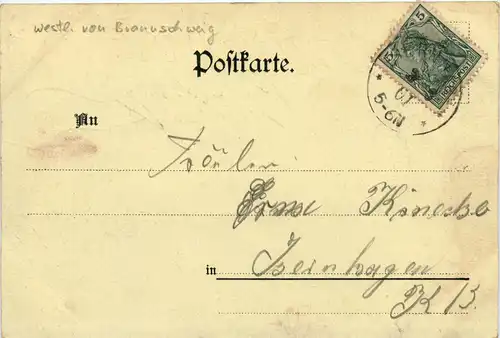 westl. von Braunschweig
Postkarte.
5
An
5-6N
Fräulein
Erna
in Isernhagen
K B.